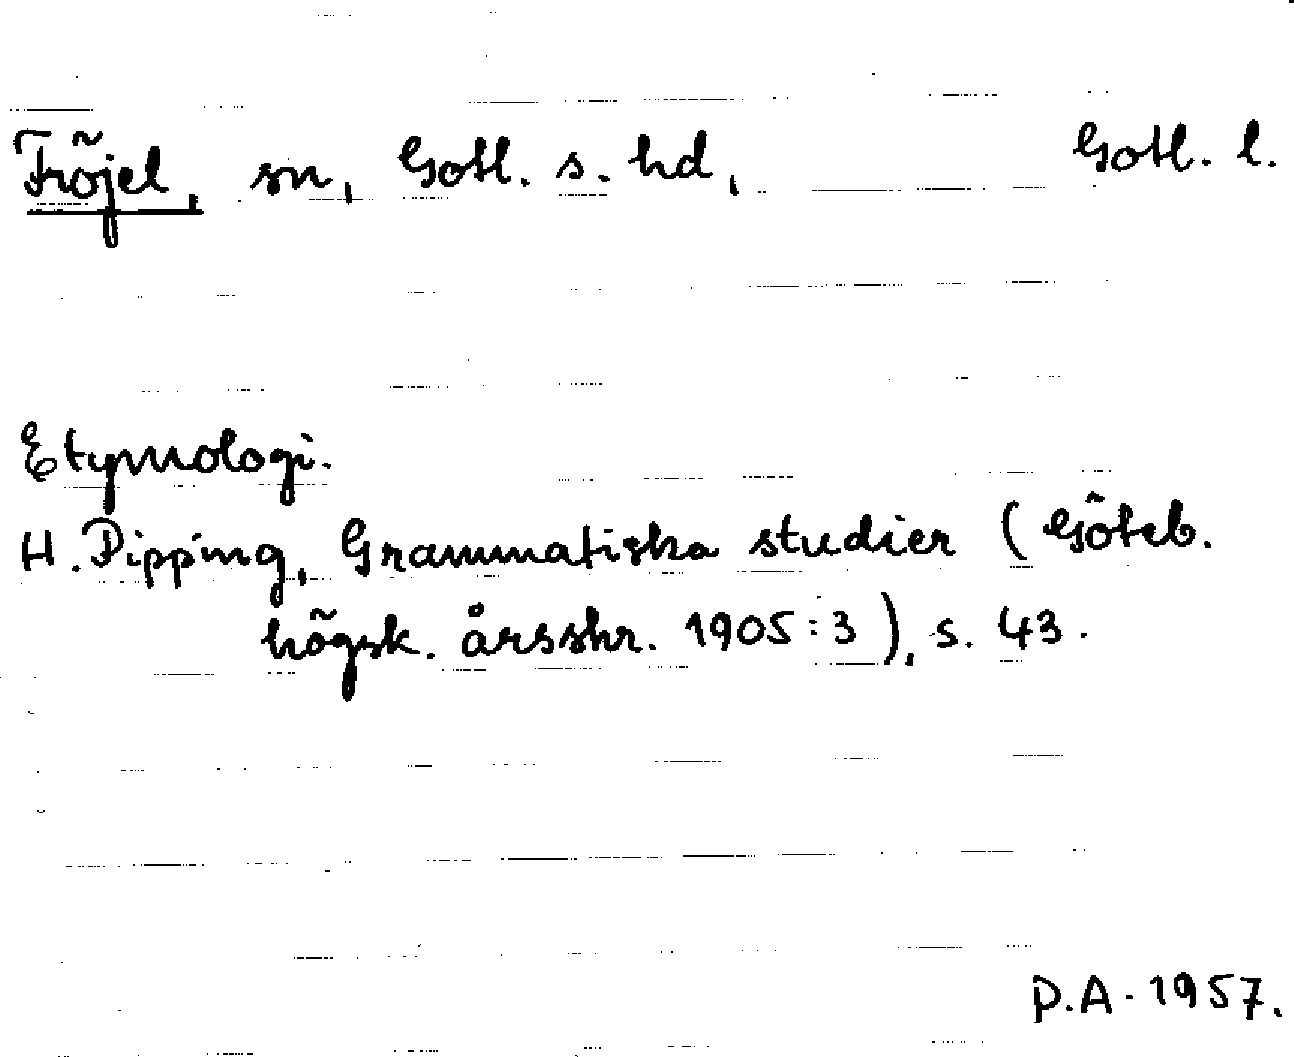 Fröjel, sn, Gotl. s. hd, Gotl. l.
Etymologi.
H. Pipping, Grammatiska studier (Göteb.
högsk. årsskr. 1905:3), s. 43.
P.A. 1957.